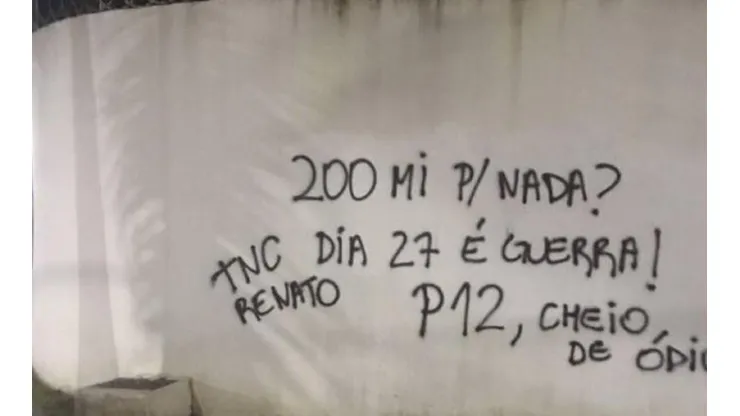 200 Mi P/ NADA?
DiA 27 É GUERRA!
TNC
RENATO
P12, CHEiO,
DE ÓDi